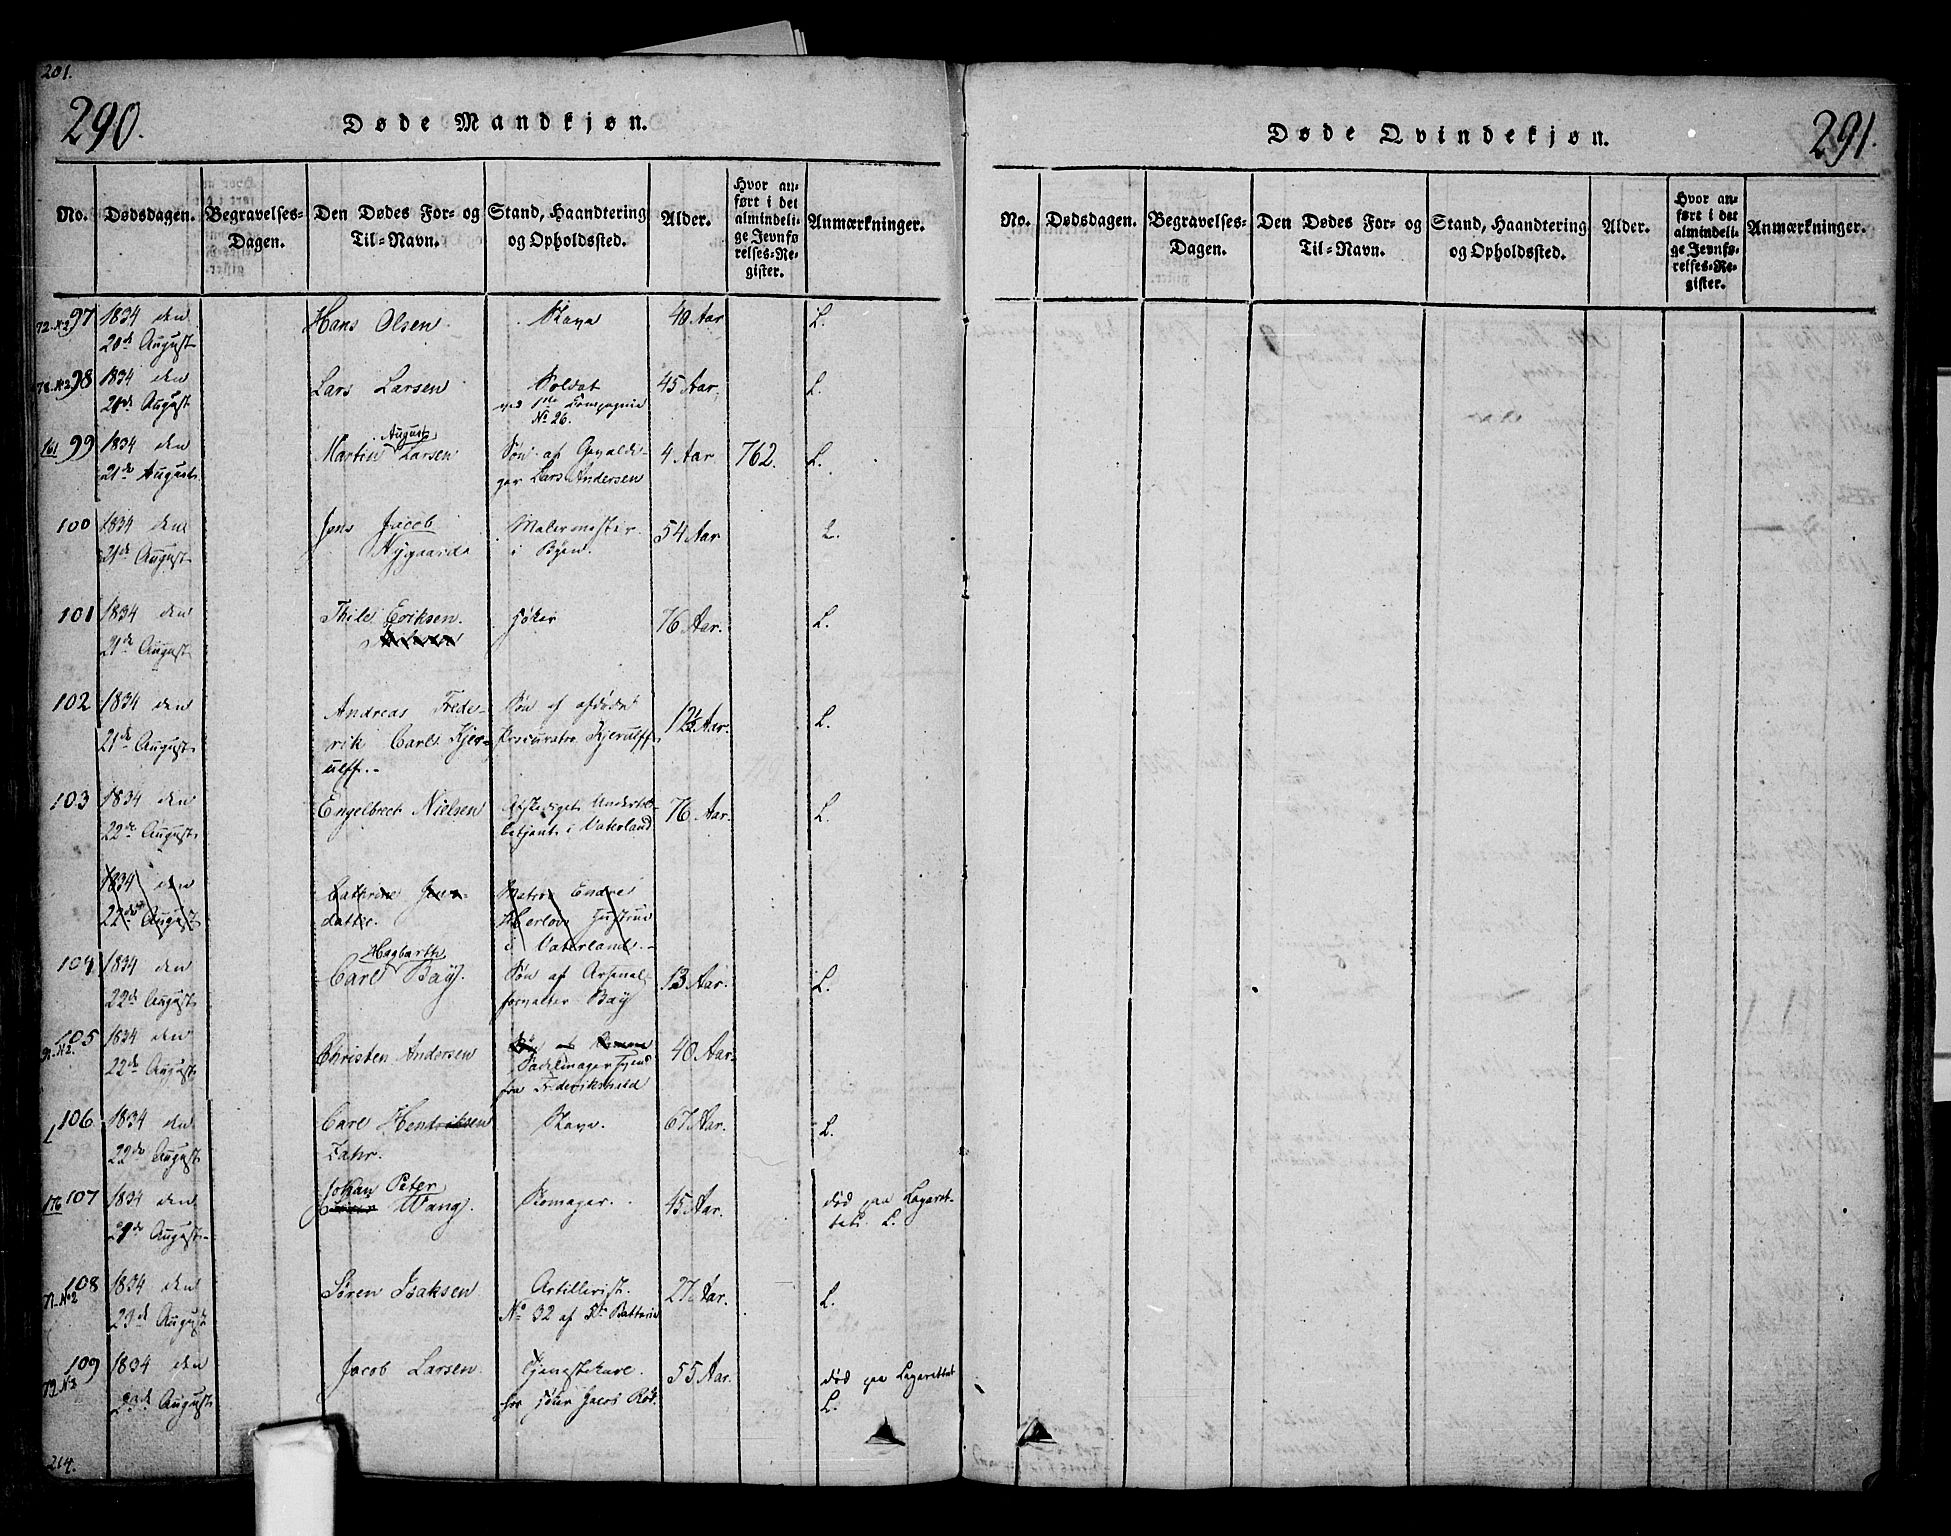 201.
290.
Døde Mandkjøn.
No. Dødsdagen. Begravelses-Dagen. Den Dødes For- og Til-Navn. Stand, Haandtering og Opholdssted. Alder. Hvor anført i det almindelige Jevnførelses-Register. Anmærkninger.
72. No 2 97 1834 den Hans Olsen. Slave 40 Aar L.
20de August
78. No 2 98 1834 den Lars Larsen Soldat 45 Aar. L.
20de August ved 1ste Compagnie
No 26.
161 99 1834 den August Søn af Gevaldi-
21de August Martin Larsen ger Lars Andersen 4 Aar 762. L.
100 1834 den Jens Jacob Malermester 54 Aar L.
21de August Nygaard i Byen.
101 1834 den Thile Eriksen. 76 Aar. L.
21de August
102 1834 den Andreas Frede- Søn af afdøde 12½ Aar. L.
21de August rik Carl Kjer- Procurator Kjerulff
ulff.
103 1834 den Engelbret Nielsen Afskediget Undertol- 76 Aar. L.
22de August betjent i Vaterland
1834 den Cathrine Jens- Matros Endre
22de August datter. Hustrue
i Vaterland.
104 1834 den Hagbarth Søn af Arsenal
22de August Carl Baÿ. forvalter Baÿ 13 Aar. L.
105 1834 den Christen Andersen Søn af 40 Aar.
91. No 2. 22de August Sadelmagersvend
fra Frederikshald
106 1834 den Carl Hendriksen Slave. 67 Aar. L.
L 22de August Fahr.
107 1834 den Johan Peter Skomager. 45 Aar. død paa Lazaret-
176 August Wang. tet. L.
108 1834 den Søren Isaksen Artillerist. 27 Aar. L.
71. No 2 23de August No 32 af 5te Batterie
109 1834 den Jacob Larsen Tjenestekarl 55 Aar. død paa Lazarettet
79 No 2 August for Jacob L.
214.
291.
Døde Qvindekjøn.
No. Dødsdagen. Begravelses-Dagen. Den Dødes For- og Til-Navn. Stand, Haandtering og Opholdssted. Alder. Hvor anført i det almindelige Jevnførelses-Register. Anmærkninger.